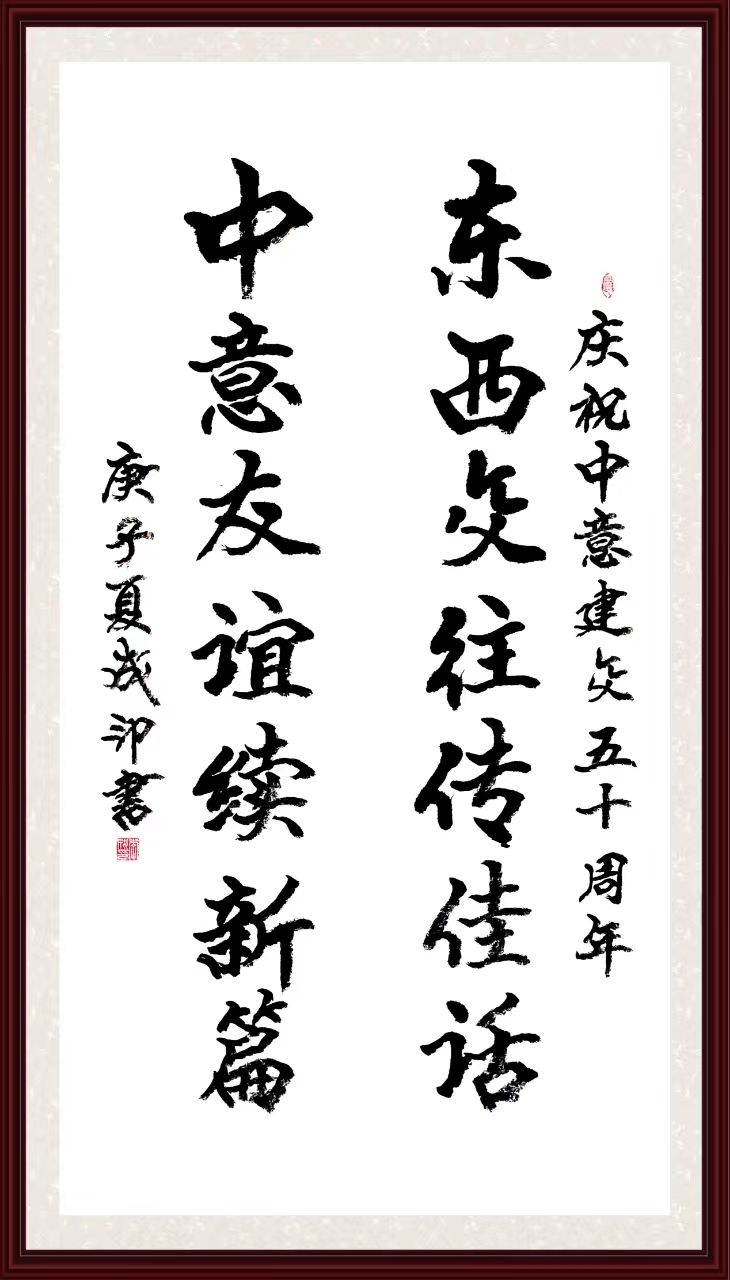 庆祝中意建交五十周年
东西交往传佳话
中意友谊续新篇
庚子夏成印书